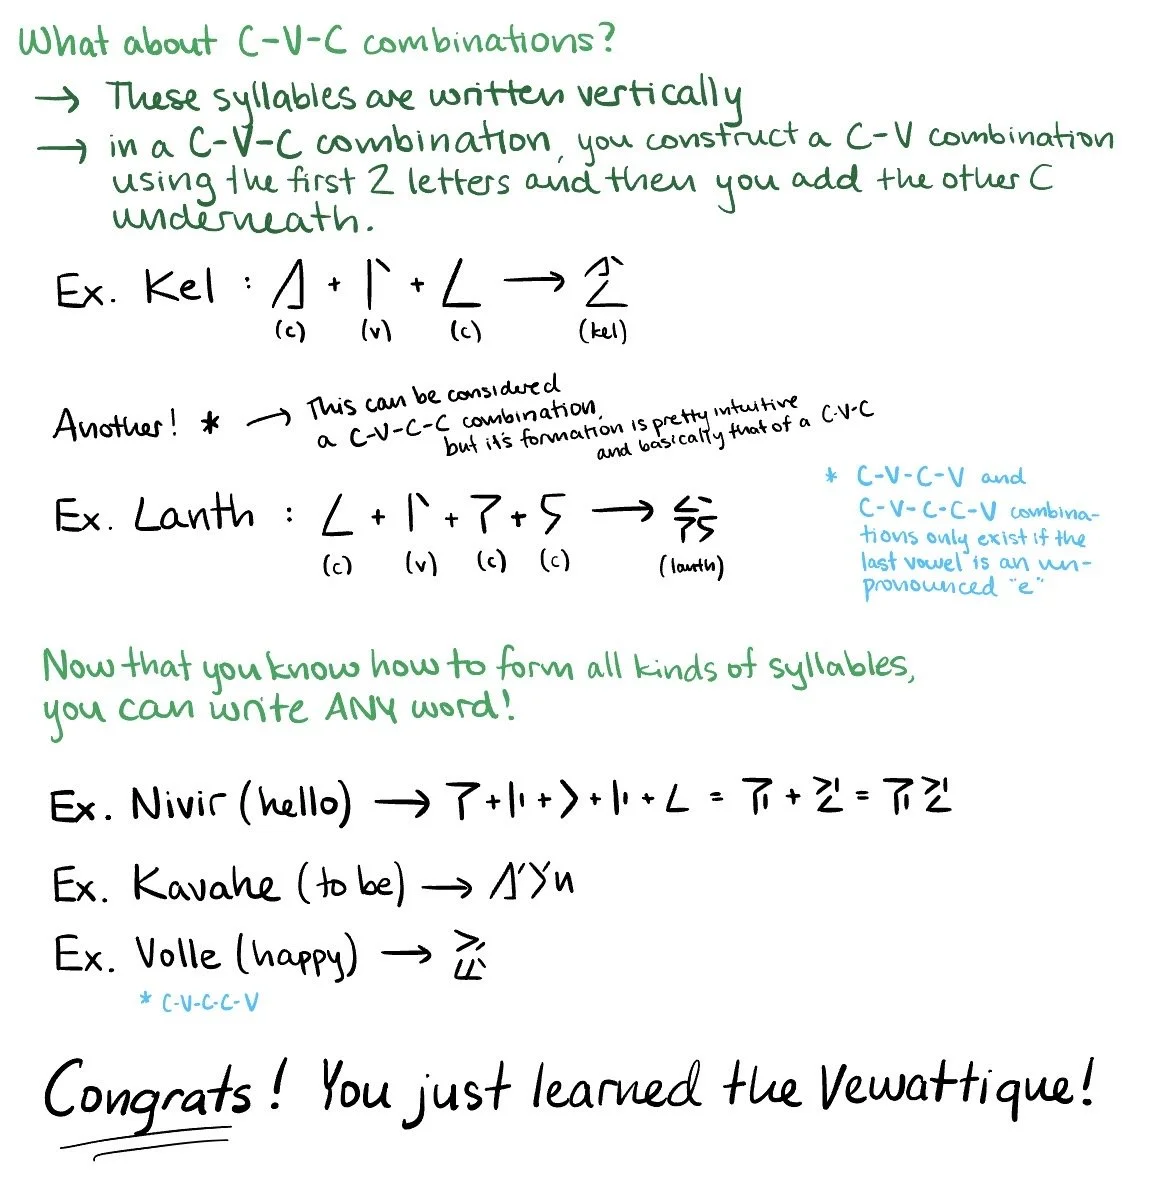 What about C-V-C combinations?
→ These syllables are written vertically
→ in a C-V-C combination, you construct a C-V combination
using the first 2 letters and then you add the other C
underneath.
Ex. Kel : + + →
(c) (v) (c) (kel)
Another! * → This can be considered
a C-V-C-C combination,
but it's formation is pretty intuitive
and basically that of a C-V-C
* C-V-C-V and
C-V-C-C-V combina-
tions only exist if the
last vowel is an un-
pronounced "e"
Ex. Lanth : + + + →
(c) (v) (c) (c) (lanth)
Now that you know how to form all kinds of syllables,
you can write ANY word!
Ex. Nivir (hello) → + + + + = + =
Ex. Kavahe (to be) →
Ex. Volle (happy) →
* C-V-C-C-V
Congrats! You just learned the Vewattique!